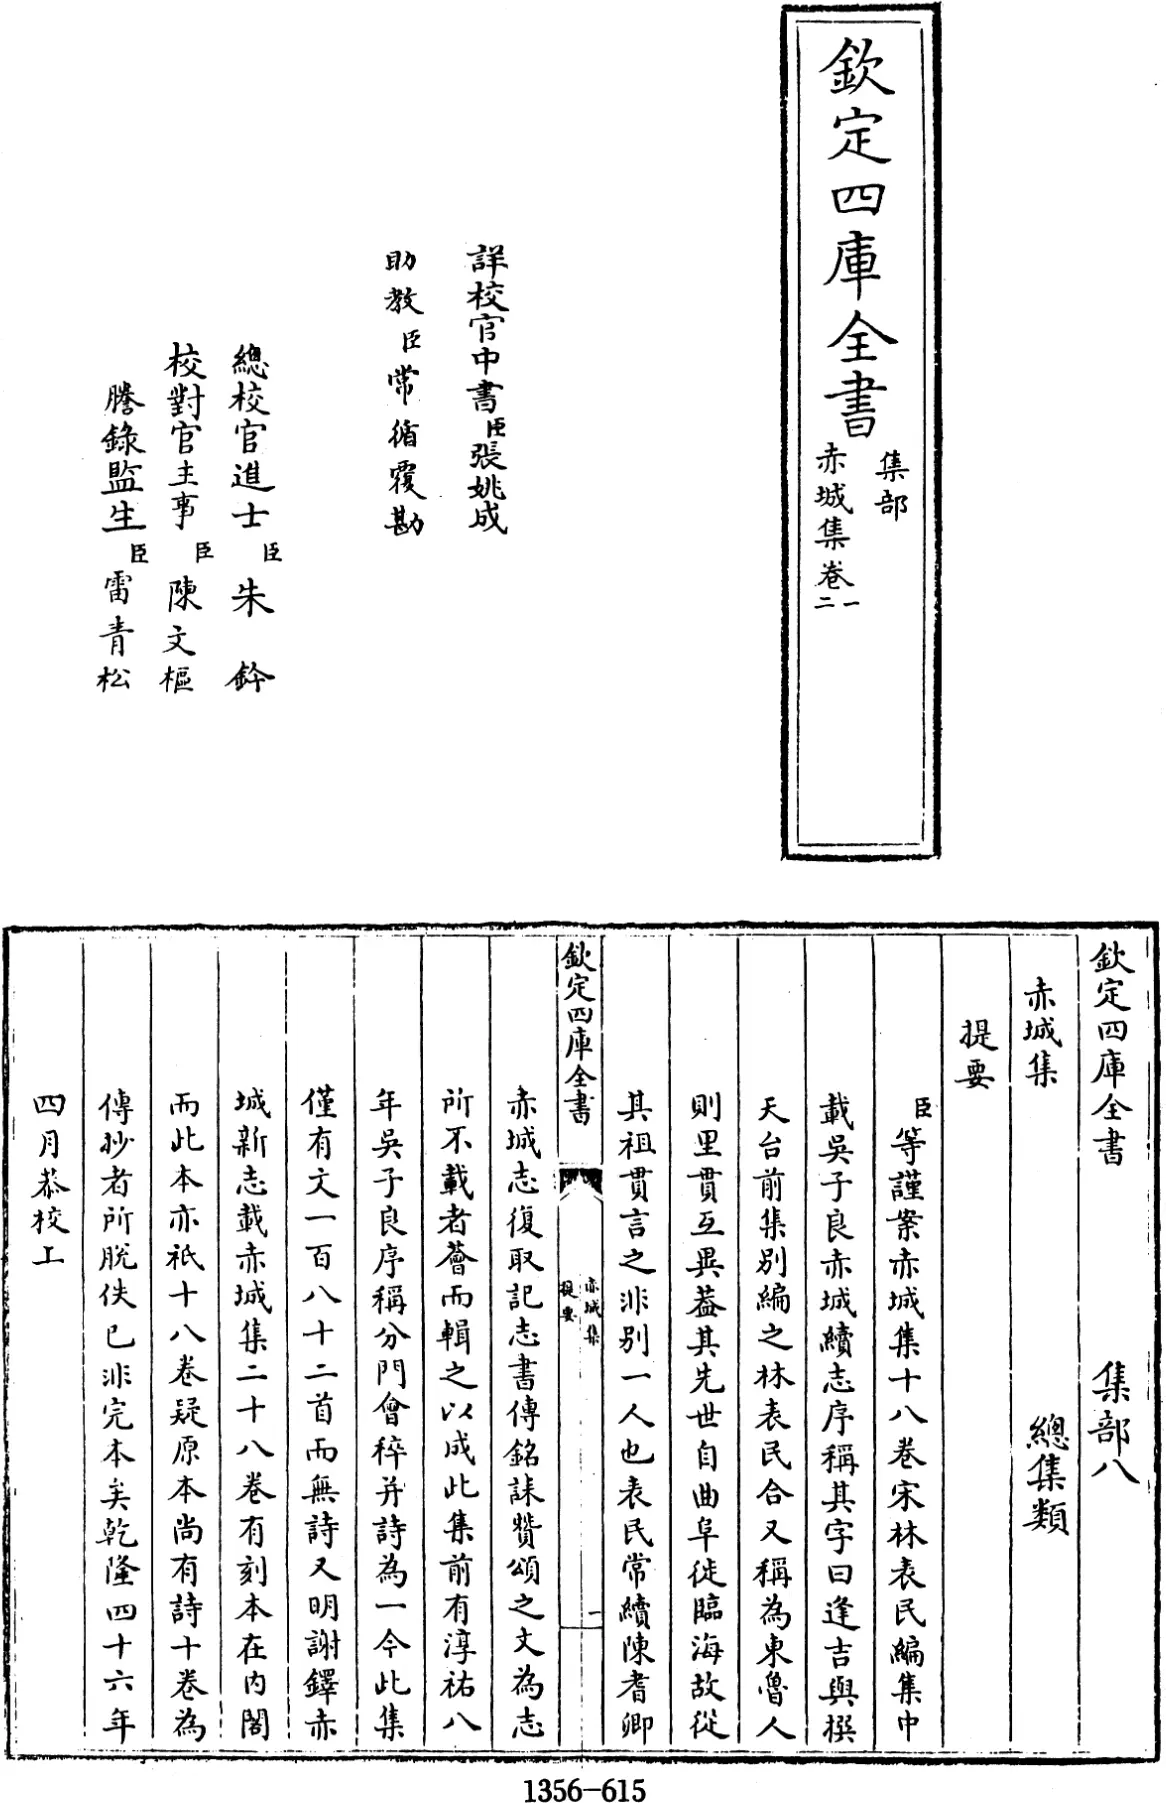 欽定四庫全書
集部
赤城集卷一
二
詳校官中書臣張姚成
助教臣常循覆勘
總校官進士臣朱鈐
校對官主事臣陳文樞
謄錄監生臣雷青松
欽定四庫全書 集部八
赤城集 總集類
提要
臣等謹案赤城集十八卷宋林表民編集中
載吳子良赤城續志序稱其字曰逢吉與撰
天台前集別編之林表民合又稱為東魯人
則里貫互異蓋其先世自曲阜徙臨海故從
其祖貫言之非別一人也表民常續陳耆卿
欽定四庫全書
赤城集
提要
一
赤城志復取記志書傳銘誄贊頌之文為志
所不載者薈而輯之以成此集前有淳祐八
年吳子良序稱分門會稡并詩為一今此集
僅有文一百八十二首而無詩又明謝鐸赤
城新志載赤城集二十八卷有刻本在內閣
而此本亦祇十八卷疑原本尚有詩十卷為
傳抄者所脫佚已非完本矣乾隆四十六年
四月恭校上
1356-615